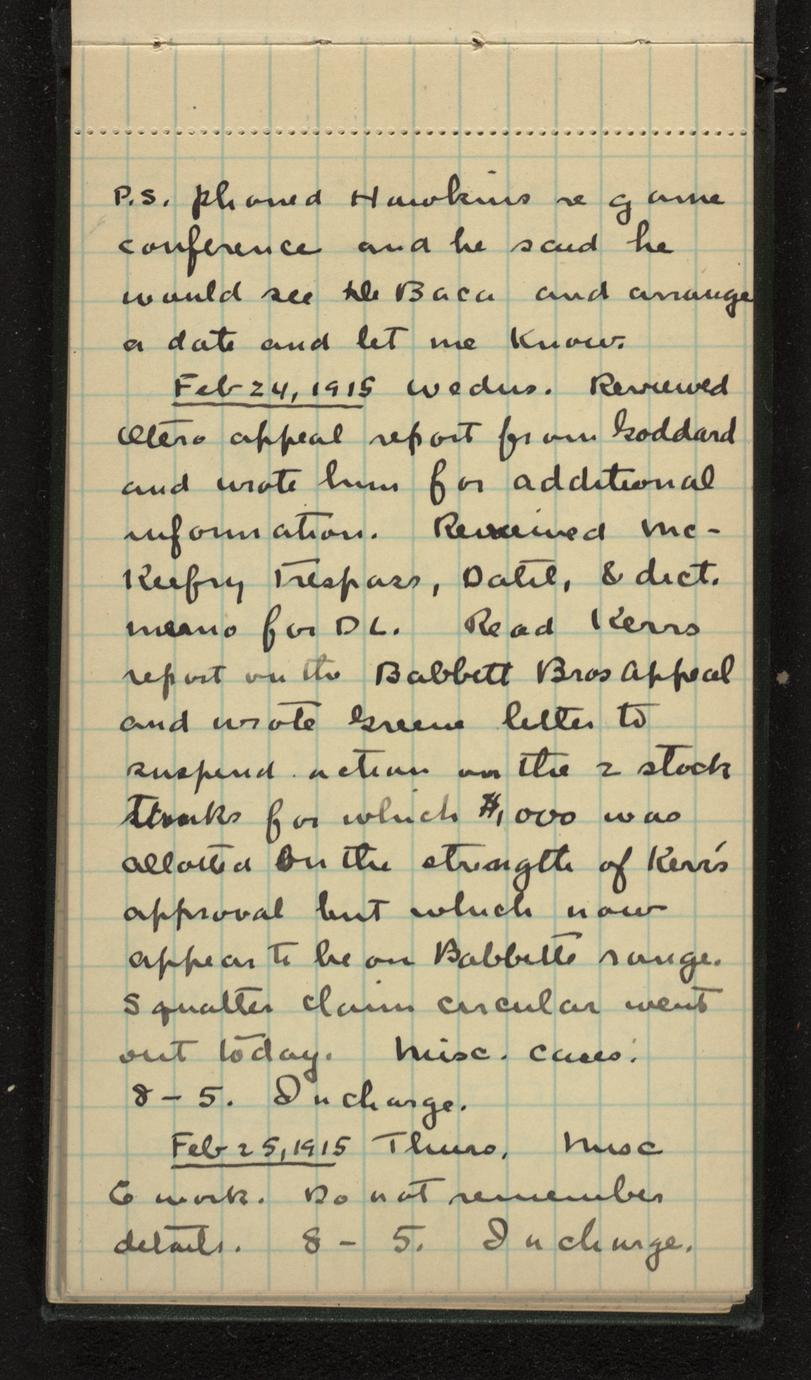 P.S. phoned Hawkins re game
conference and he said he
would see De Baca and arrange
a date and let me know.
Feb 24, 1915 Wednes. Reviewed
Otero appeal report from Goddard
and wrote him for additional
information. Reviewed Mc-
Keefry Trespass, Datil, & dict.
memo for DL. Read Kerrs
report on the Babbett Bros Appeal
and wrote Greene letter to
suspend action on the 2 stock
tanks for which $1,000 was
allotted on the strength of Kerr's
approval but which now
appear to be on Babbetts range.
Squatter claim circular went
out today. Misc. cases.
8 - 5. In charge.
Feb 25, 1915 Thurs, Misc
G work. Do not remember
details. 8 - 5. In charge.